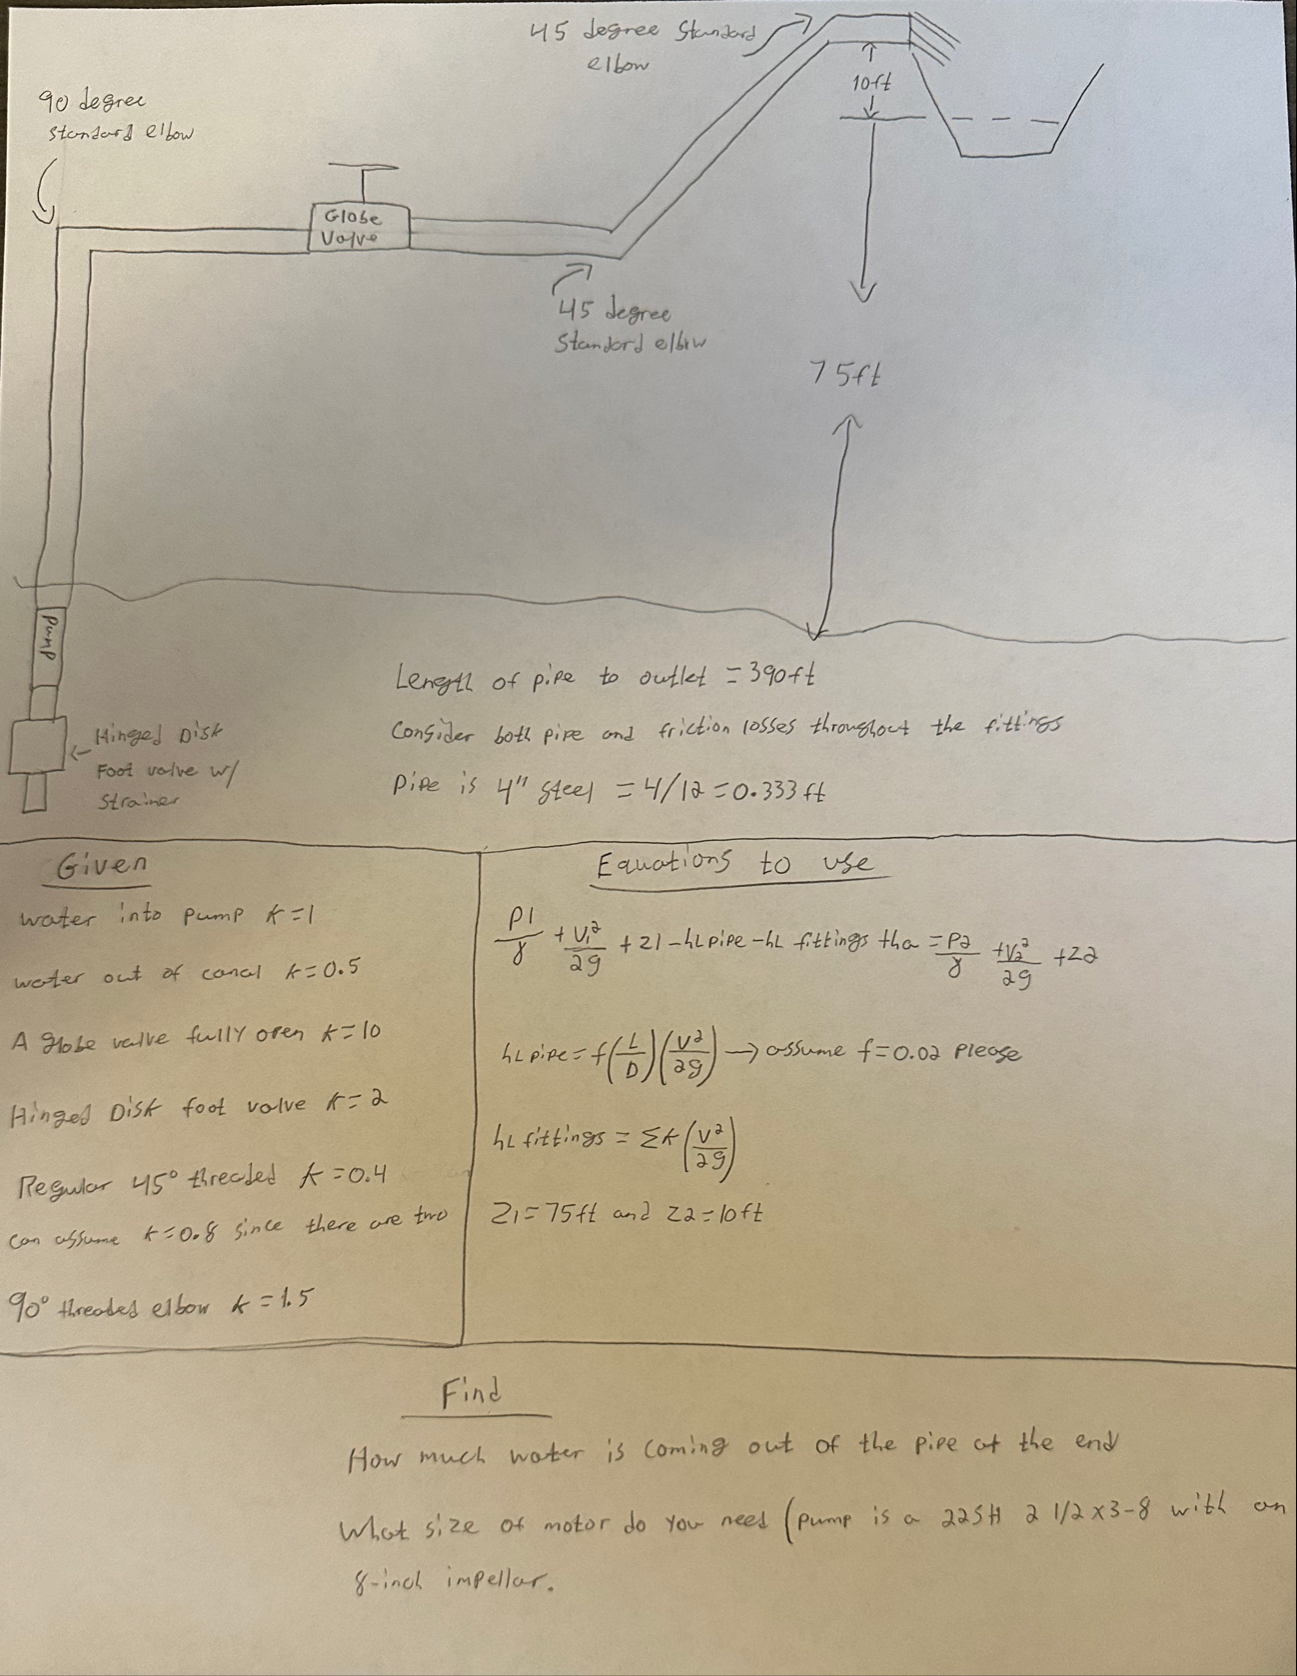 45 degree Standard
elbow
90 degree
standard elbow
10ft
Globe
Valve
45 degree
Standard elbow
75ft
Pump
Hinged Disk
Foot valve w/
Strainer
Length of pipe to outlet = 390ft
Consider both pipe and friction losses throughout the fittings
Pipe is 4" steel = 4/12 = 0.333 ft
Given
water into pump K=1
water out of canal K=0.5
A globe valve fully open K=10
Hinged Disk foot valve K=2
Regular 45° threaded K=0.4
can assume K=0.8 since there are two
90° threaded elbow K=1.5
Equations to use
P1/γ + V1²/2g + Z1 - hL pipe - hL fittings + ha = P2/γ + V2²/2g + Z2
hL pipe = f(L/D)(V²/2g) → assume f=0.02 please
hL fittings = ΣK(V²/2g)
Z1=75ft and Z2=10ft
Find
How much water is coming out of the pipe at the end
What size of motor do you need (pump is a 22SH 2 1/2x3-8 with an
8-inch impellar.